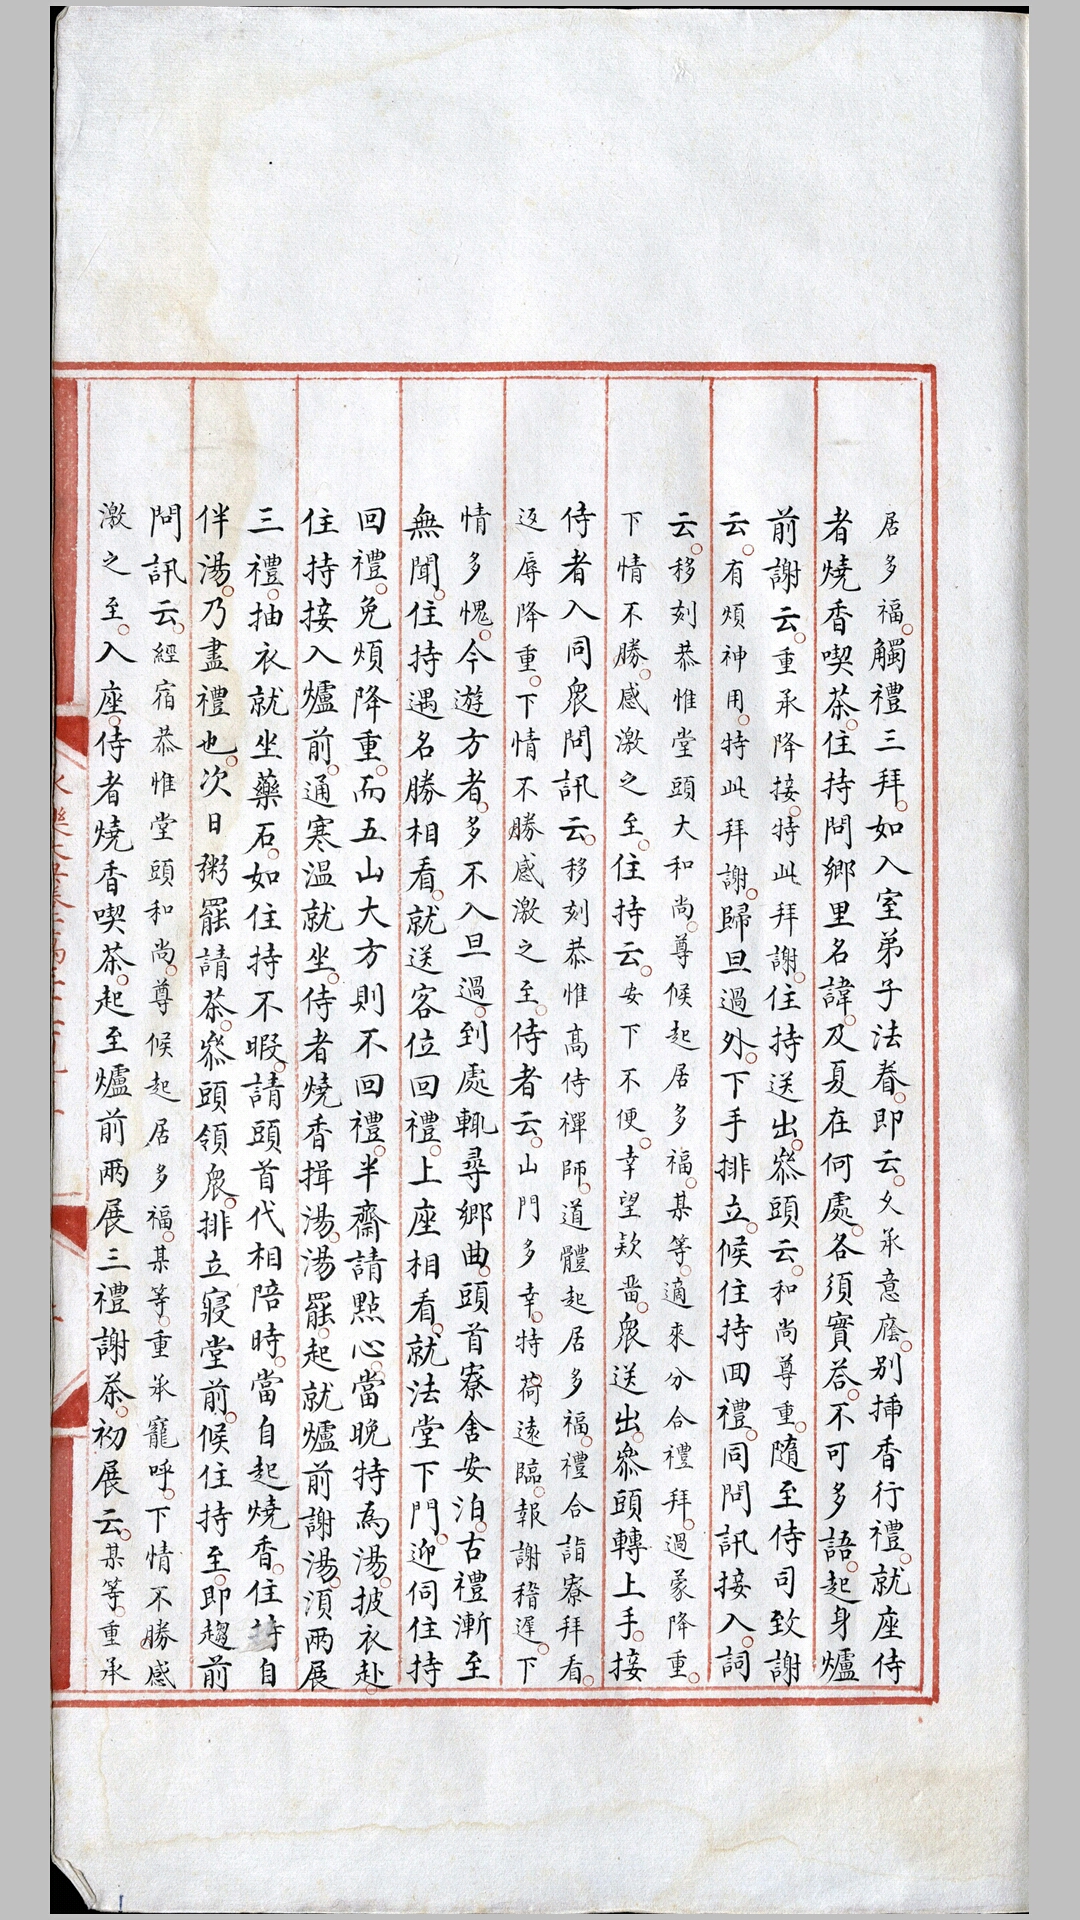 居多福。觸禮三拜。如入室弟子法眷。即云。久承意廕。別揷香行禮。就座侍
者燒香喫茶。住持問鄉里名諱。及夏在何處。各須實荅。不可多語。起身爐
前謝云。重承降接。特此拜謝。住持送出。叅頭云。和尚尊重。隨至侍司致謝
云。有煩神用。特此拜謝。歸旦過外。下手排立。候住持回禮。同問訊接入。詞
云。移刻恭惟堂頭大和尚。尊候起居多福。某等。適來分合禮拜。過蒙降重。
下情不勝。感激之至。住持云。安下不便。幸望欵畱。衆送出。叅頭轉上手。接
侍者入同衆問訊云。移刻恭惟高侍禪師。道體起居多福。禮合詣寮拜看。
返辱降重。下情不勝感激之至。侍者云。山門多幸。特荷遠臨。報謝稽遲。下
情多愧。今遊方者。多不入旦過。到處輒尋鄉曲。頭首寮舍安泊。古禮漸至
無聞。住持遇名勝相看。就送客位回禮。上座相看。就法堂下門。迎伺住持
回禮。免煩降重。而五山大方則不回禮。半齋請點心。當晚特為湯。披衣赴。
住持接入爐前。通寒溫就坐。侍者燒香揖湯。湯罷。起就爐前謝湯。湏兩展
三禮。抽衣就坐藥石。如住持不暇。請頭首代相陪時。當自起燒香。住持自
伴湯。乃盡禮也。次日粥罷請茶。叅頭領衆。排立寢堂前。候住持至。即趨前
問訊云。經宿恭惟堂頭和尚。尊候起居多福。某等。重承寵呼。下情不勝感
激之至。入座。侍者燒香喫茶。起至爐前兩展三禮謝茶。初展云。某等。重承